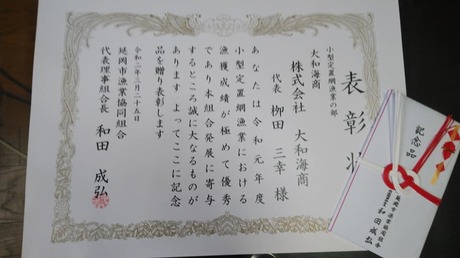 表彰状
小型定置網漁業の部
大和海商
株式会社 大和海商
代表 柳田 三幸 様
あなたは令和元年度
小型定置網漁業における
漁獲成績が極めて優秀
であり本組合発展に寄与
するところ誠に大なるものが
あります よってここに記念
品を贈り表彰します
令和二年三月二十五日
延岡市漁業協同組合
代表理事組合長 和田 成弘
記念品
延岡市漁業協同組合
和田成弘